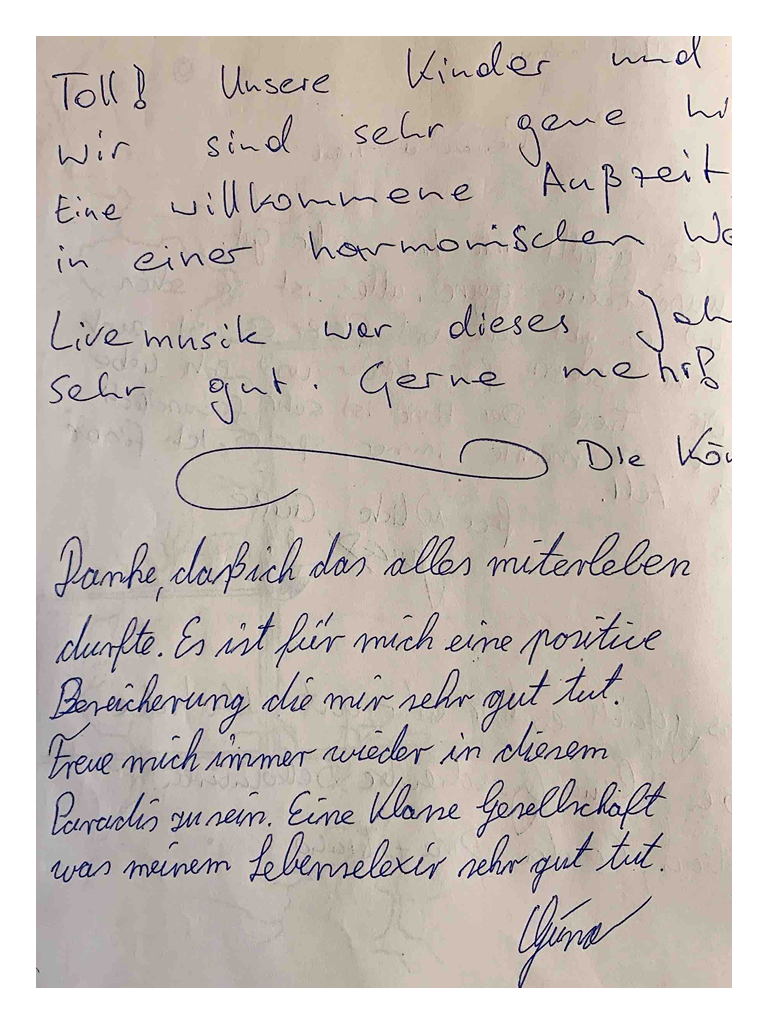 Toll! Unsere Kinder und
wir sind sehr gene
Eine willkommene Außzeit
in einer harmonischen
Livemusik war dieses Jah
sehr gut. Gerne mehr!
Die Kön
Danke, daß ich das alles miterleben
durfte. Es ist für mich eine positive
Bereicherung die mir sehr gut tut.
Freue mich immer wieder in diesem
Paradis zu sein. Eine Klasse Gesellschaft
was meinem Lebenselexir sehr gut tut.